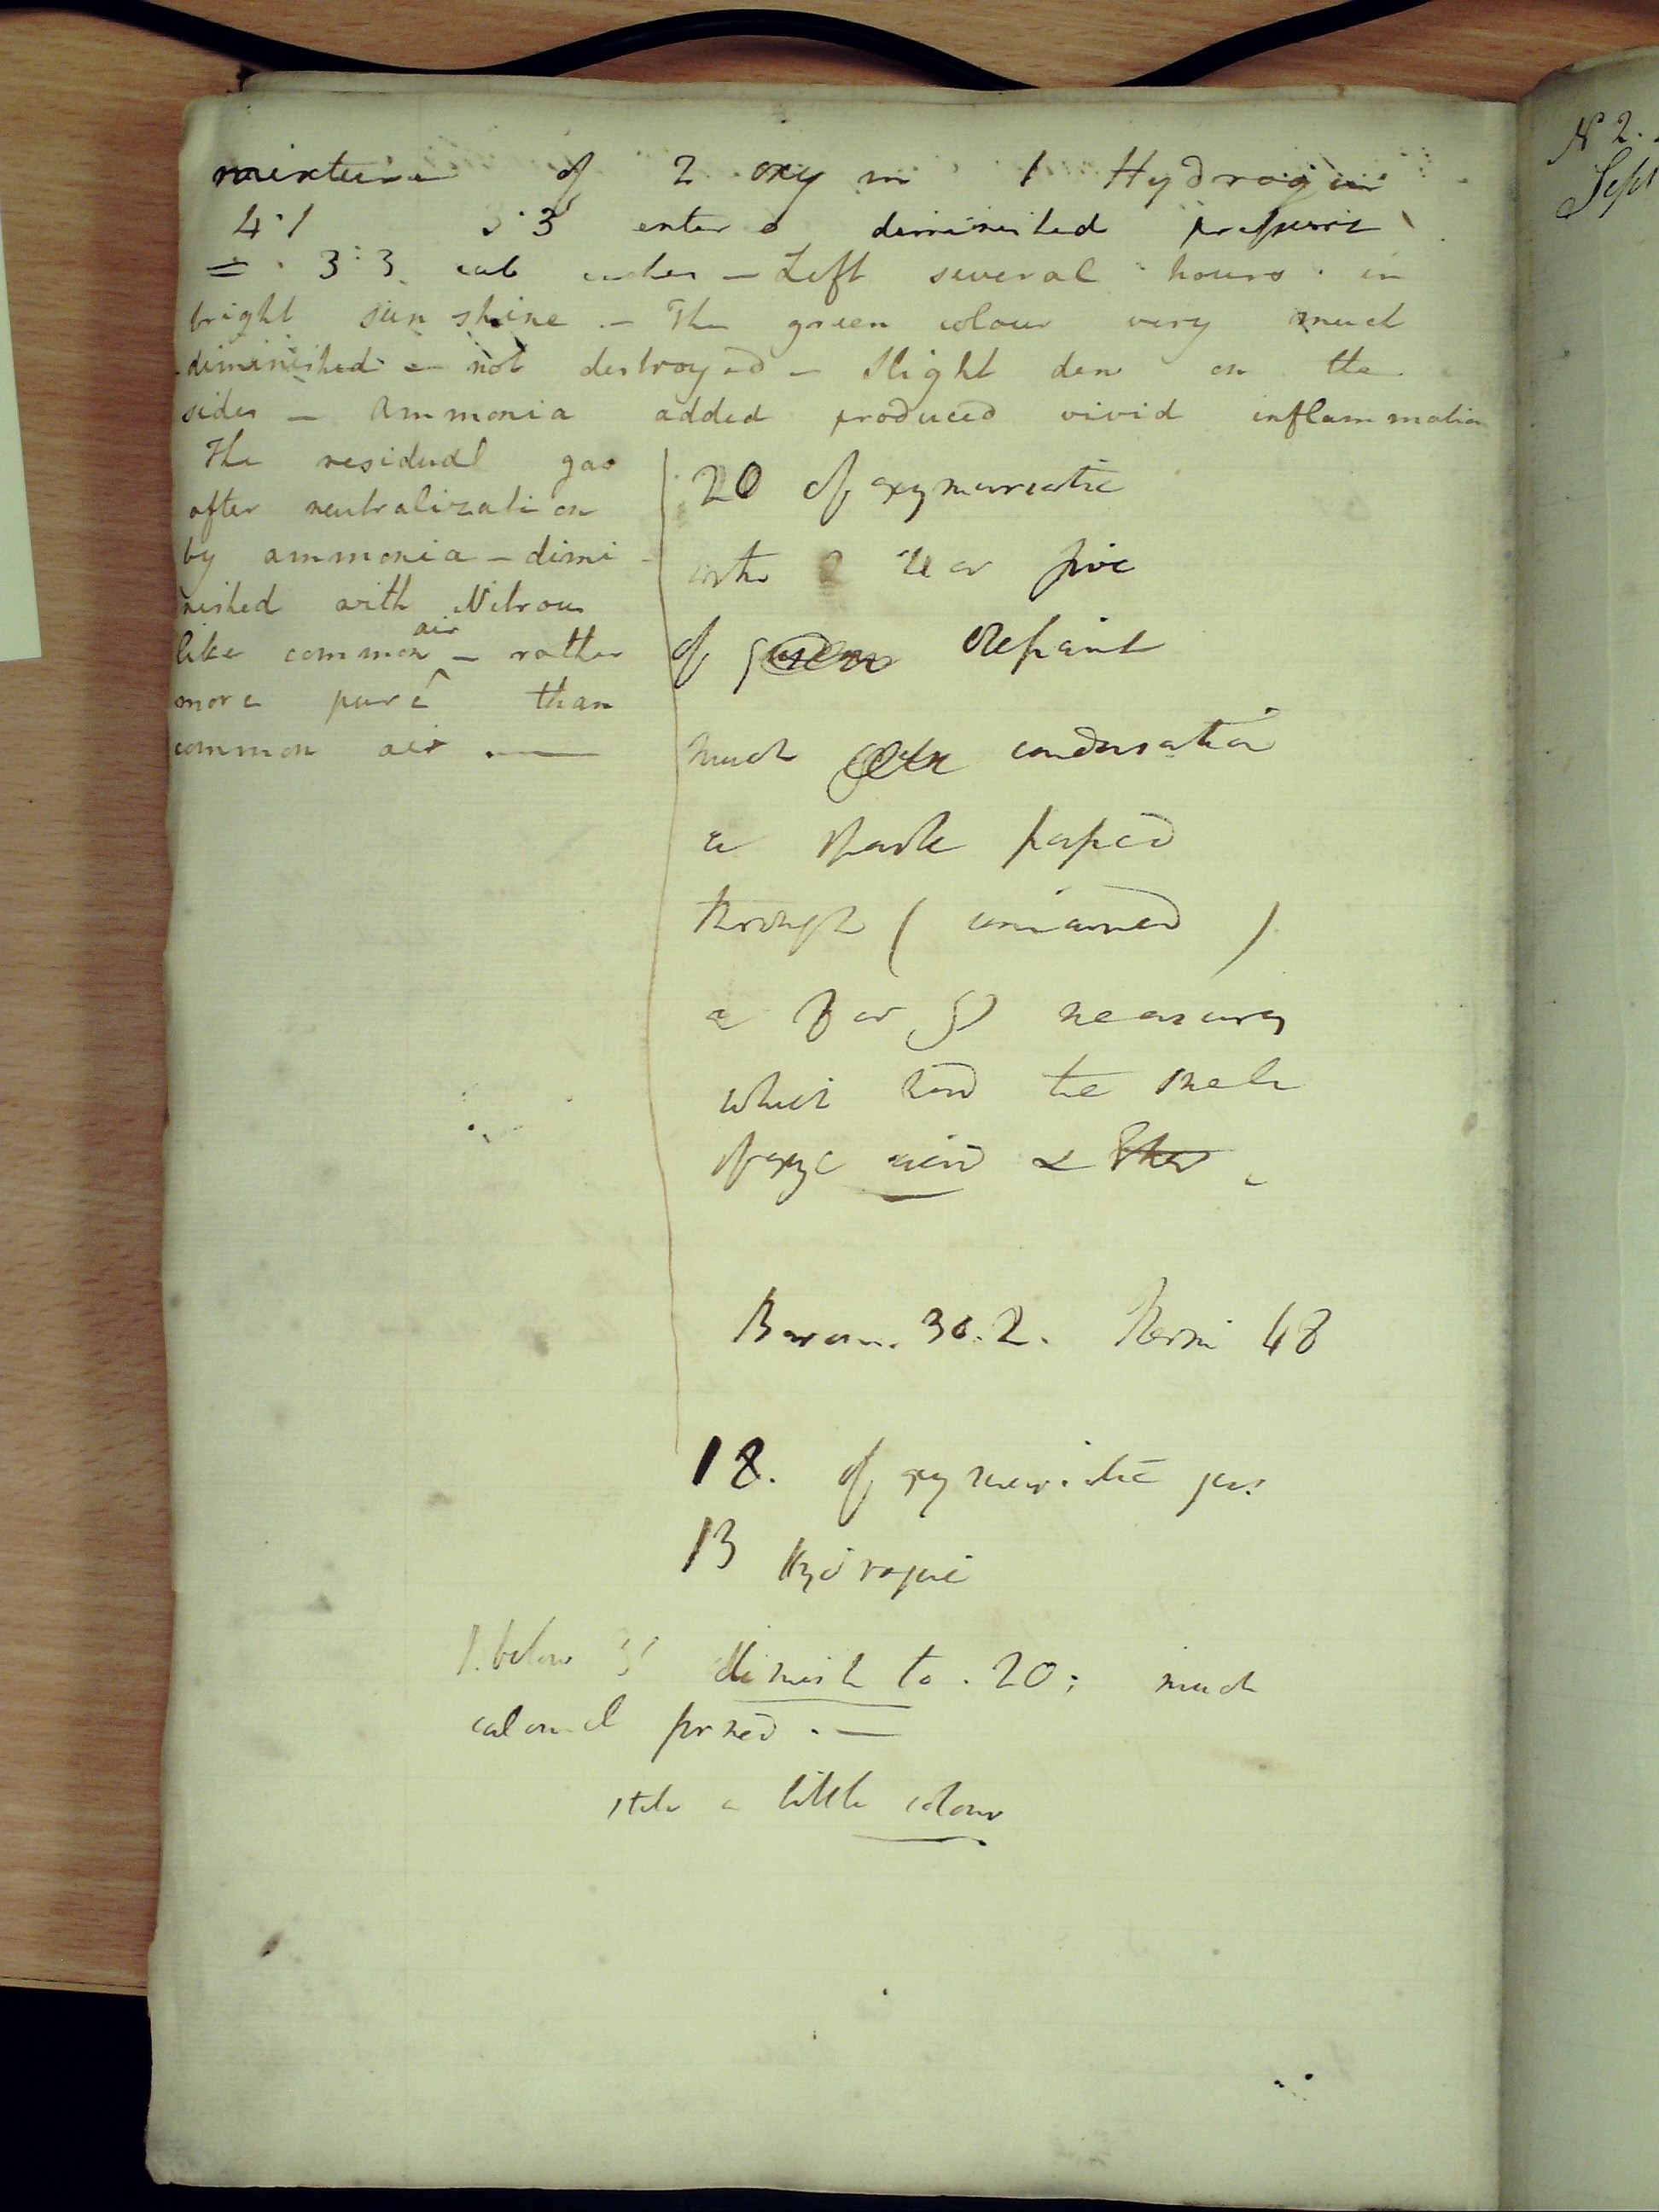 mixture of 2 oxy m 1 Hydrogen
4.1 3.3 enter diminished pressure
= 3.3 cub inches - Left several hours in
bright sun shine - The green colour very much
diminished - not destroyed - slight dew on the
sides - Ammonia added produced vivid inflammation
The residual gas
after neutralization
by ammonia - dimi
nished with Nitrous
air
like common - rather
more pure than
common air -
20 of oxymuriatic
with 2 or five
of olefiant
much condensation
a spark passed
through ( )
a 8 or 9 measures
which had the smell
of oxyc acid & Ether
Barom. 30.2. Therm 48
18. of oxymuriatic gas
13 Hydrogene
1. below 3 dimish to . 20; much
calomel formed . -
still a little colour
N 2.
Sept